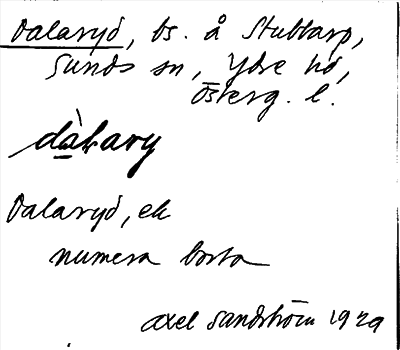 Dalaryd, bs. å Stubbarp,
Sunds sn, Ydre hd,
Österg. l.
Dalaryd, ek
numera borta
Axel Sandström 1929